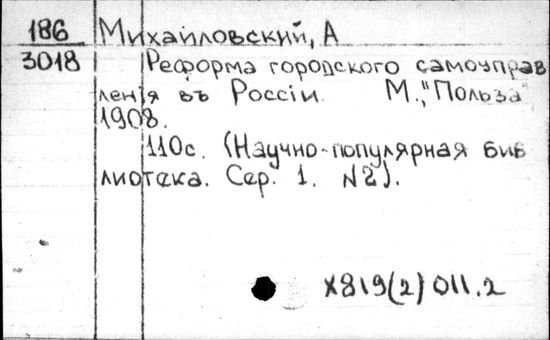 186 Михайловский, А
3018 Реформа городского самоуправ
ленія въ Россіи. М., "Польза"
1908.
110с. (Научно-популярная биб
лиотека. Сер. 1. №2).
X819(2)011.2